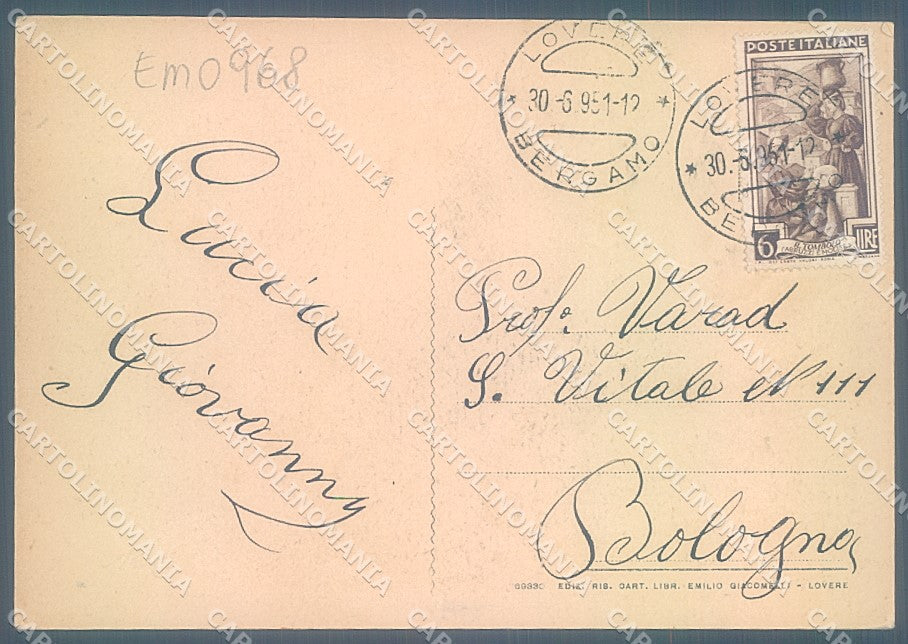 Em0968
LOVERE
30-6.951-12
BERGAMO
LOVERE
30.-6.951-12
POSTE ITALIANE
6 LIRE
IL TOMBOLO
Lucia
Giovanny
Prof. Varad
S. Vitale N 111
Bologna
69330 EDIZ. RIS. CART. LIBR. EMILIO GIACOMELLI - LOVERE
CARTOLINOMANIA